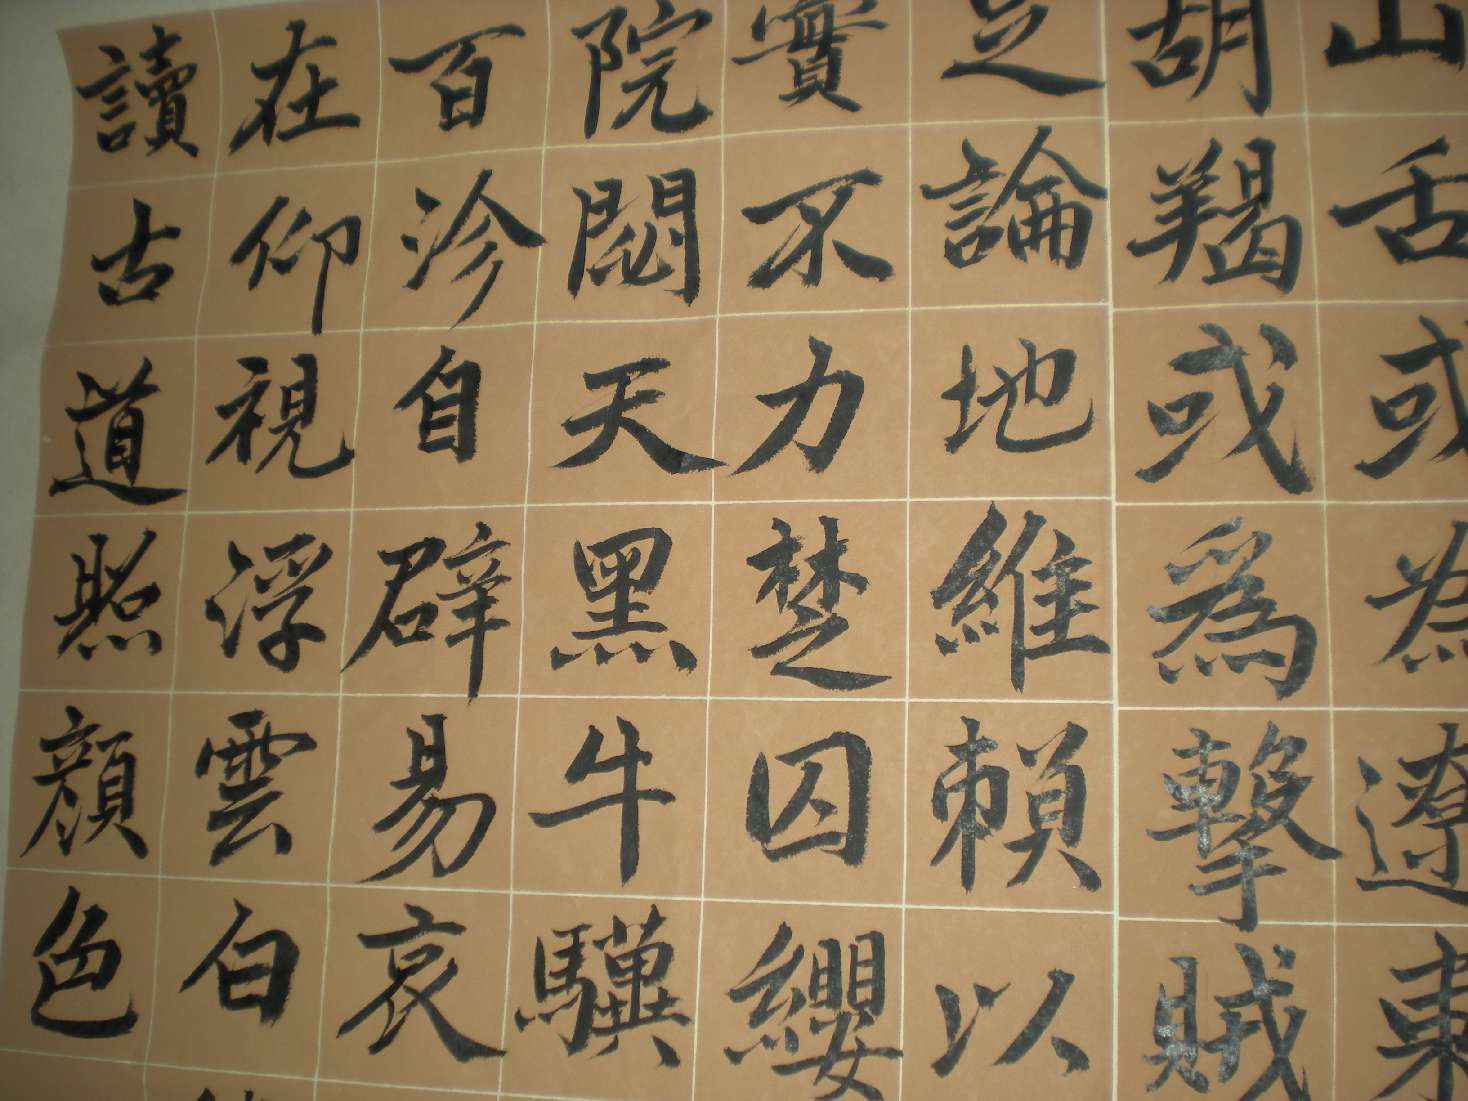 山舌或為遼東
胡羯或爲擊賊
足論地維賴以
實不力楚囚纓
院閟天黑牛驥
百沴自辟易哀
在仰視浮雲白
讀古道照顏色